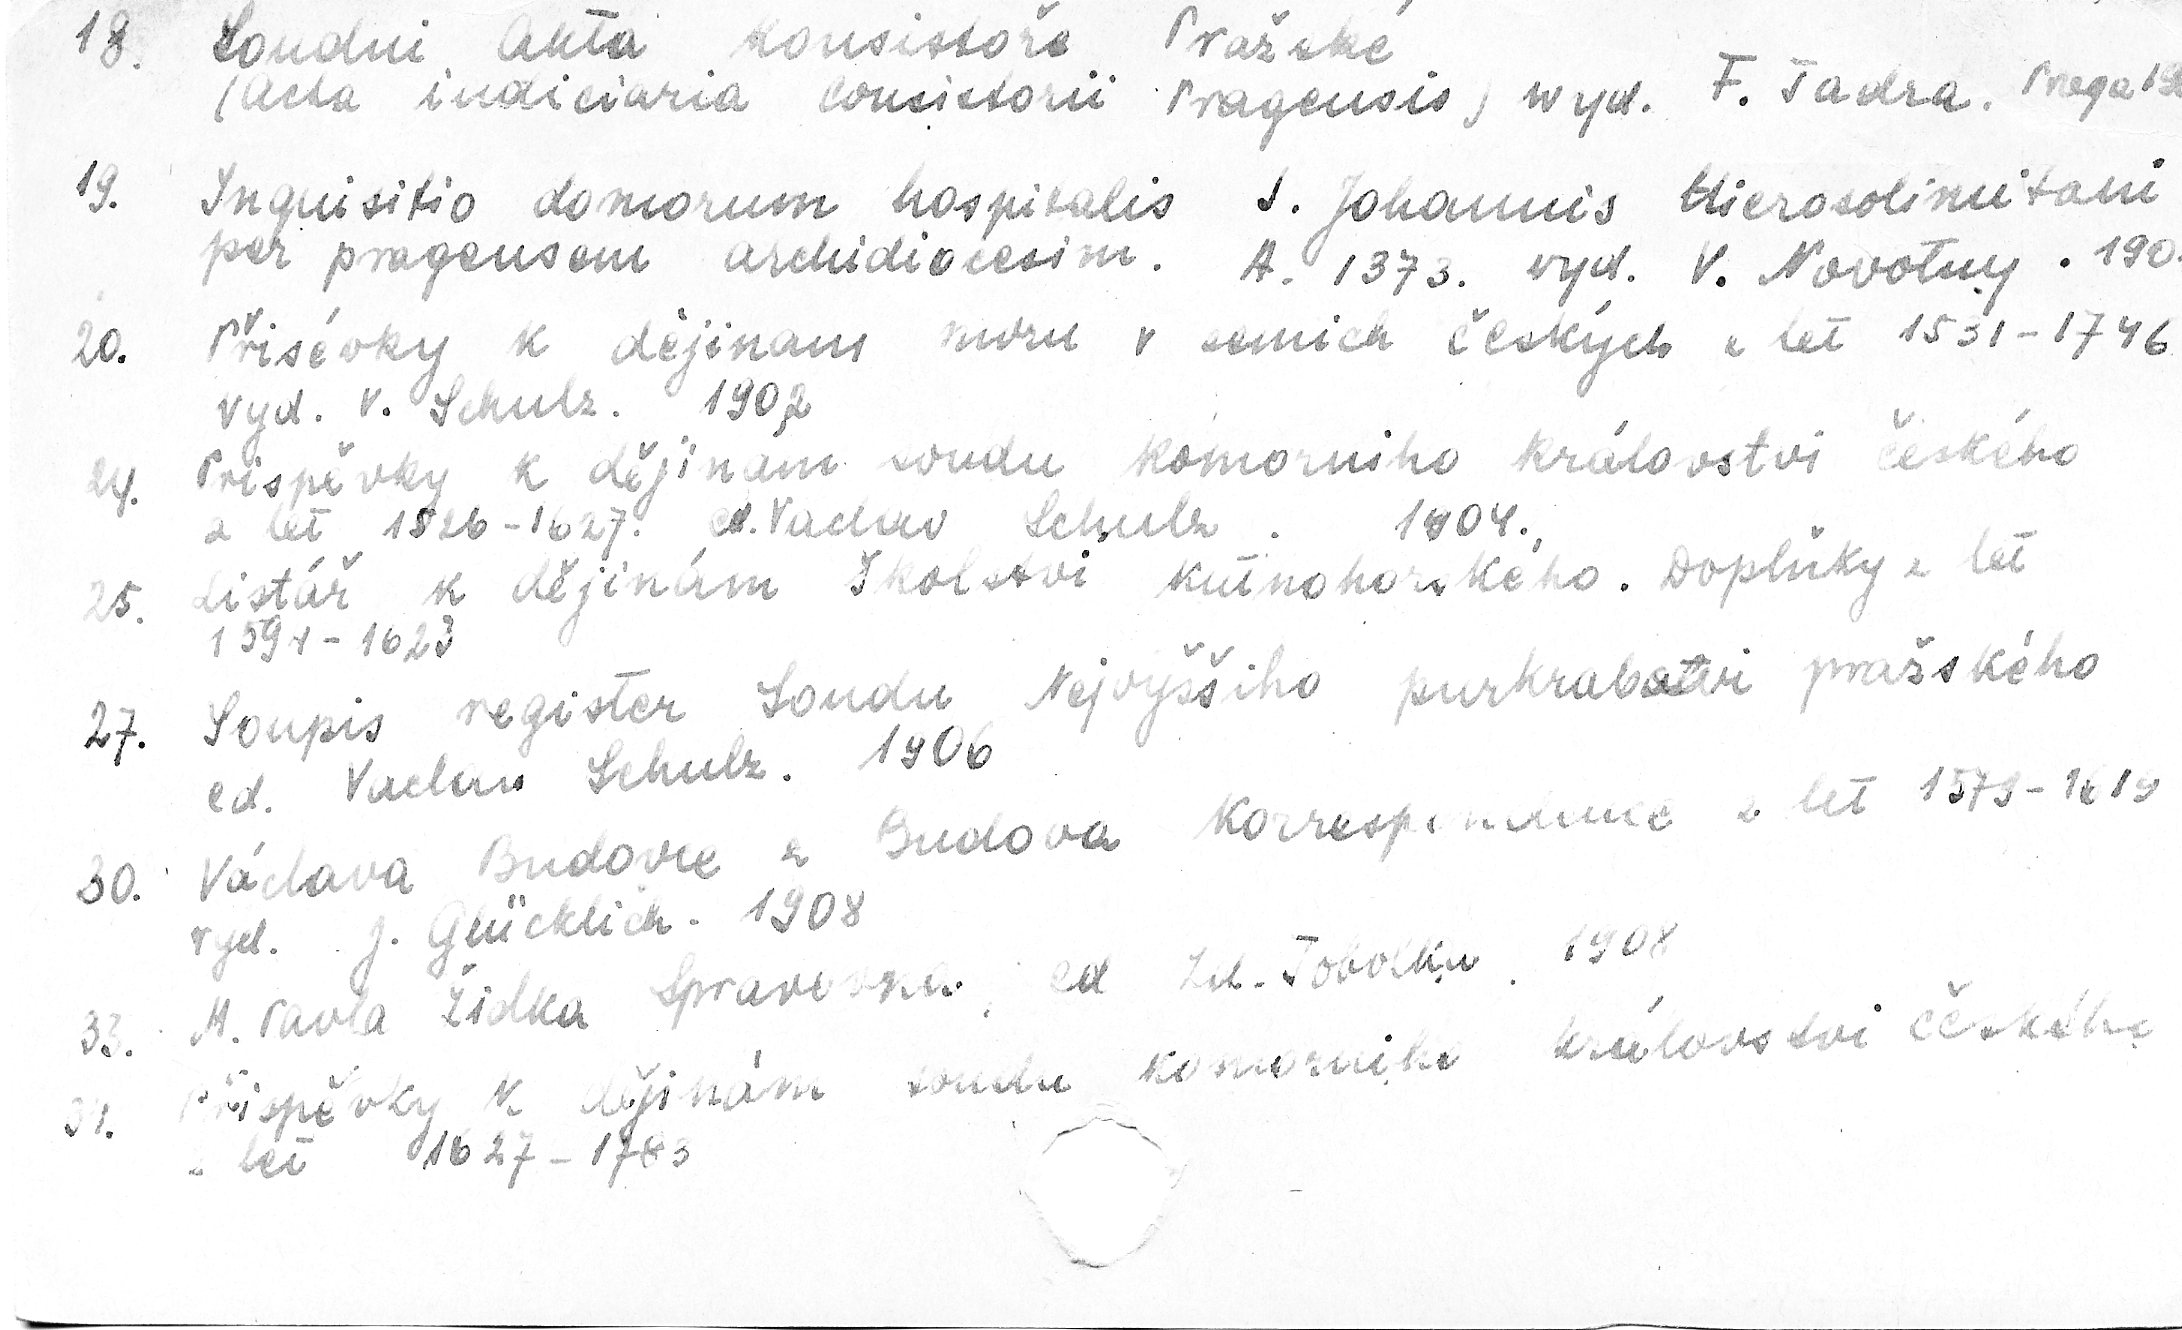 18. Soudni Akta Konsistoře Pražské
(Acta iudiciaria Consistorii Pragensis) wyd. F. Tadra. Praga 19
19. Inquisitio domorum hospitalis S. Johannis Hierosolimitani
per pragensem archidiocesim. A. 1373. wyd. V. Novotny. 190.
20. Přisévky k dějinam moru v zemich českých z let 1531-1746
vyd. V. Schulz. 1902
24. Prispěvky k dějinám soudu komorniho Královstvi českého
z let 1526-1627. ed. Vaclav Schulz. 1904.
25. Listář k dějinám školstvi kutnohorského. Doplňky z let
1594-1623
27. Soupis register Soudu Nejvyššiho purkrabstvi pražského
ed. Vaclav Schulz. 1906
30. Václava Budovce z Budova Korrespondence z let 1579-1619
vyd. J. Glücklich. 1908
33. M. Pavla Židka Spravovna. ed Zd. Tobolka. 1908
34. Přispěvky k dějinám soudu komorniho královstvi českého
z let 1627-1783